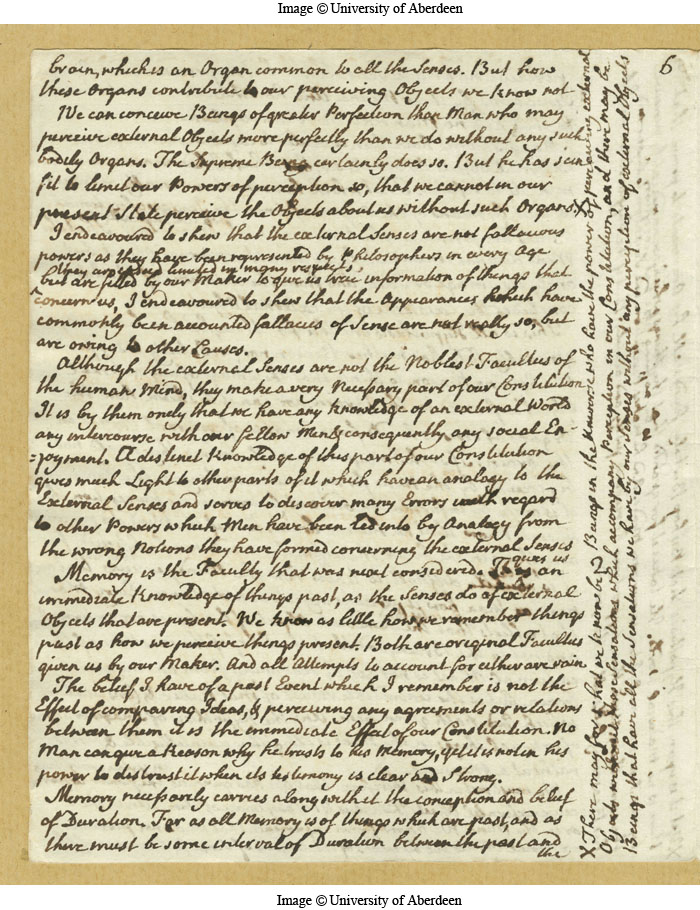 Image © University of Aberdeen
6
brain, which is an Organ common to all the Senses. But how
these Organs contribute to our perceiving Objects we know not
We can conceive Beings of greater Perfection than Man who may
perceive external Objects more perfectly than we do without any such
bodily Organs. The Supreme Being certainly does so. But he has seen
fit to limit our Powers of perception so, that we cannot in our
present State perceive the Objects about us without such Organs X
I endeavoured to shew that the external Senses are not fallacious
powers as they have been represented by Philosophers in every Age
They are indeed limited in many respects,
but are fitted by our Maker to give us true information of things that
concern us, I endeavoured to shew that the Appearances which have
commonly been accounted fallacies of Sense are not really so, but
are owing to other Causes.
Although the external Senses are not the Noblest Faculties of
the human Mind, they make a very Necessary part of our Constitution
It is by them onely that we have any knowledge of an external World
any intercourse with our fellow Men & consequently any social En-
=joyment. A distinct Knowledge of this part of our Constitution
gives much Light to other parts of it which have an analogy to the
External Senses and serves to discover many Errors with regard
to other Powers which Men have been led into by Analogy from
the wrong Notions they have formed concerning the external Senses
Memory is the Faculty that was next considered. gives us an
immediate Knowledge of things past, as the Senses do of external
Objects that are present. We know as little how we remember things
past as how we perceive things present. Both are original Faculties
given us by our Maker. And all Attempts to account for either are vain
The belief I have of a past Event which I remember is not the
Effect of comparing Ideas, & perceiving any agreements or relations
between them it is the immediate Effect of our Constitution. No
Man can give a Reason why he trusts to his Memory, yet it is not in his
power to distrust it when its testimony is clear and Strong.
Memory necessarly carries along with it the conception and belief
of Duration. For as all Memory is of things which are past, and as
there must be some interval of Duration between the past and
the
X There may for what we know be Beings in the Universe who have the power of perceiving external
Objects without those Sensations which accompany Perception in our Constitution, and there may be
Beings that have all the Sensations we have by our Senses without any perception of external Objects
Image © University of Aberdeen